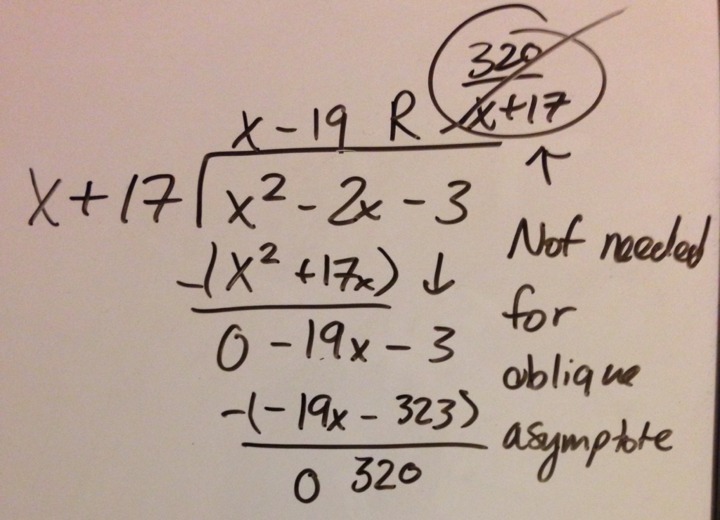 320
x+17
x - 19 R
x + 17 x² - 2x - 3
↑
-(x² + 17x) ↓
0 - 19x - 3
-(-19x - 323)
0 320
Not needed
for
oblique
asymptote